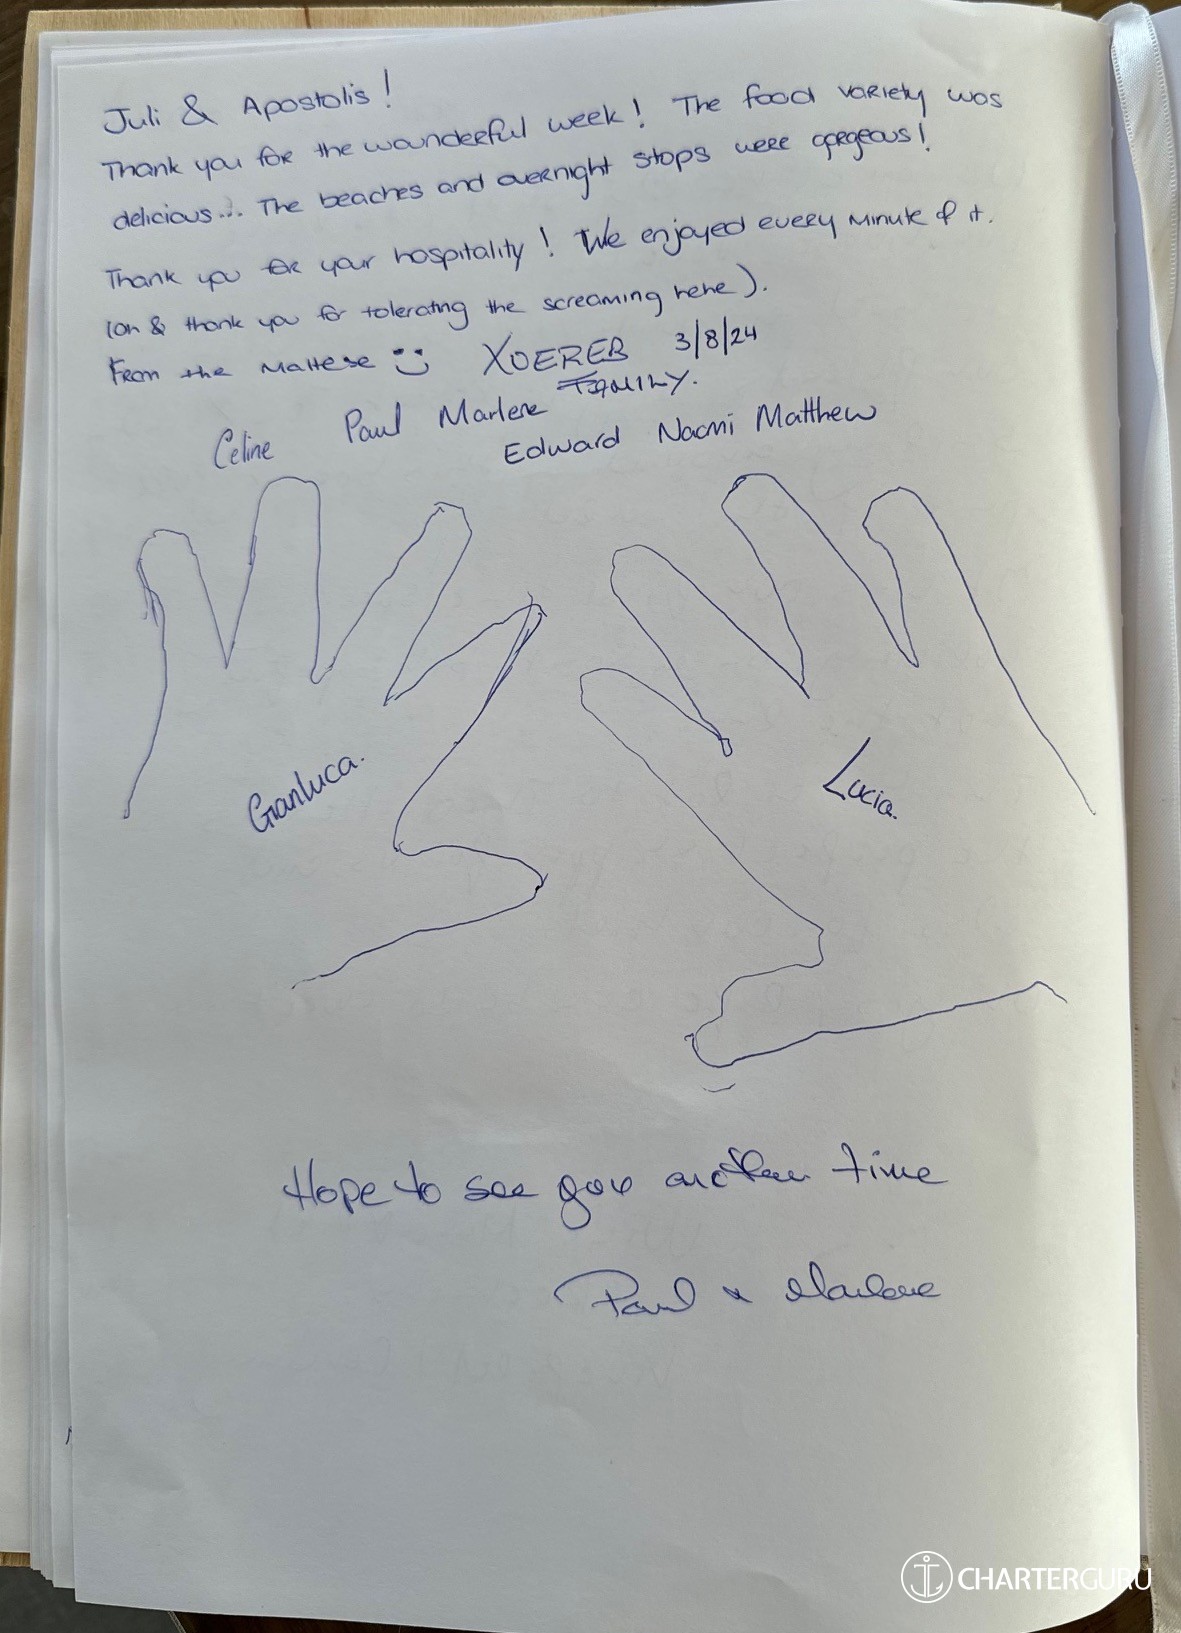 Juli & Apostolis!
Thank you for the wounderful week! The food variety was
delicious... The beaches and overnight stops were gorgeous!
Thank you for your hospitality! We enjoyed every minute of it.
(oh & thank you for tolerating the screaming hehe).
From the Maltese XUEREB 3/8/24
FAMILY.
Celine Paul Marlene Edward Naomi Matthew
Gianluca.
Lucia.
Hope to see you another time
Paul & Marlene
CHARTERGURU